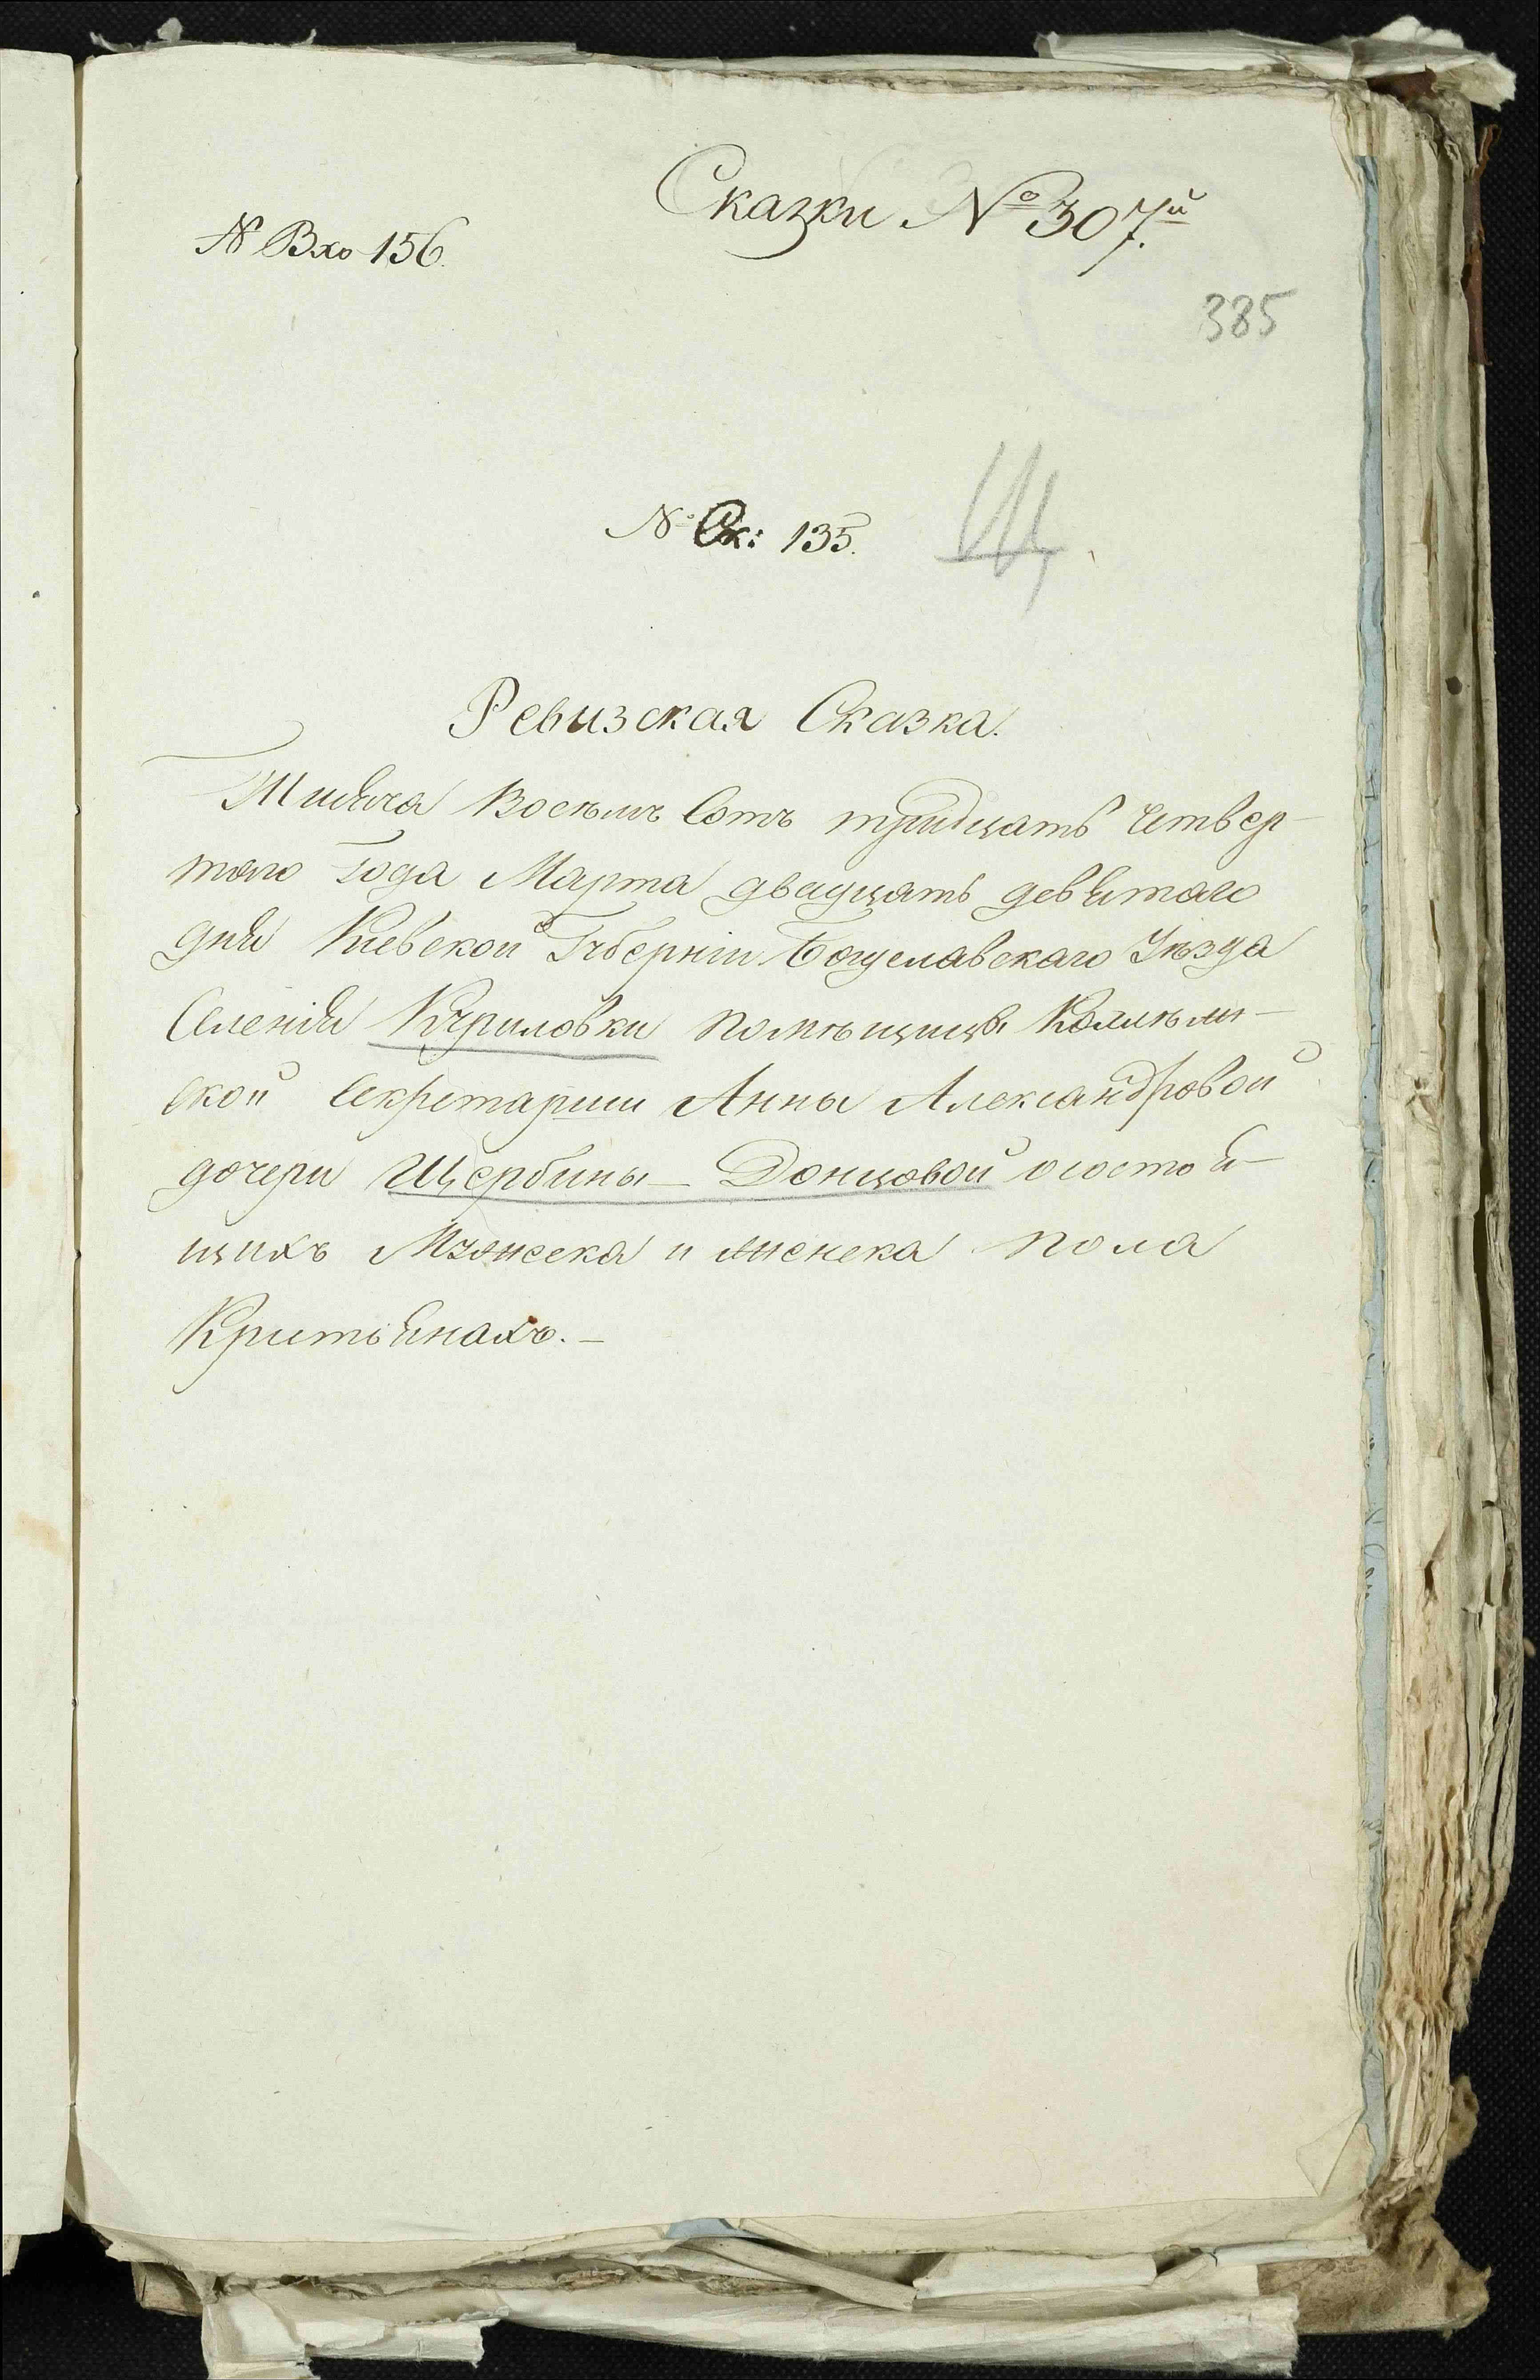 Сказки № 307й
№ Вхо 156.
385
№ Ск: 135.
Щ.
Ревизская Сказка.
Тисяча Восѣмъ Сотъ тридцать Четвер-
того Года Марта двадцать девятого
дня Киевской Губерніи Богуславскаго Уѣзда
Селенія Куриловки помѣщицы Колѣжи-
ской Секретарши Анны Александровой
дочери Щербины - Донцовой осостоя-
щихъ Мужеска и женска пола
Кристьянахъ. -